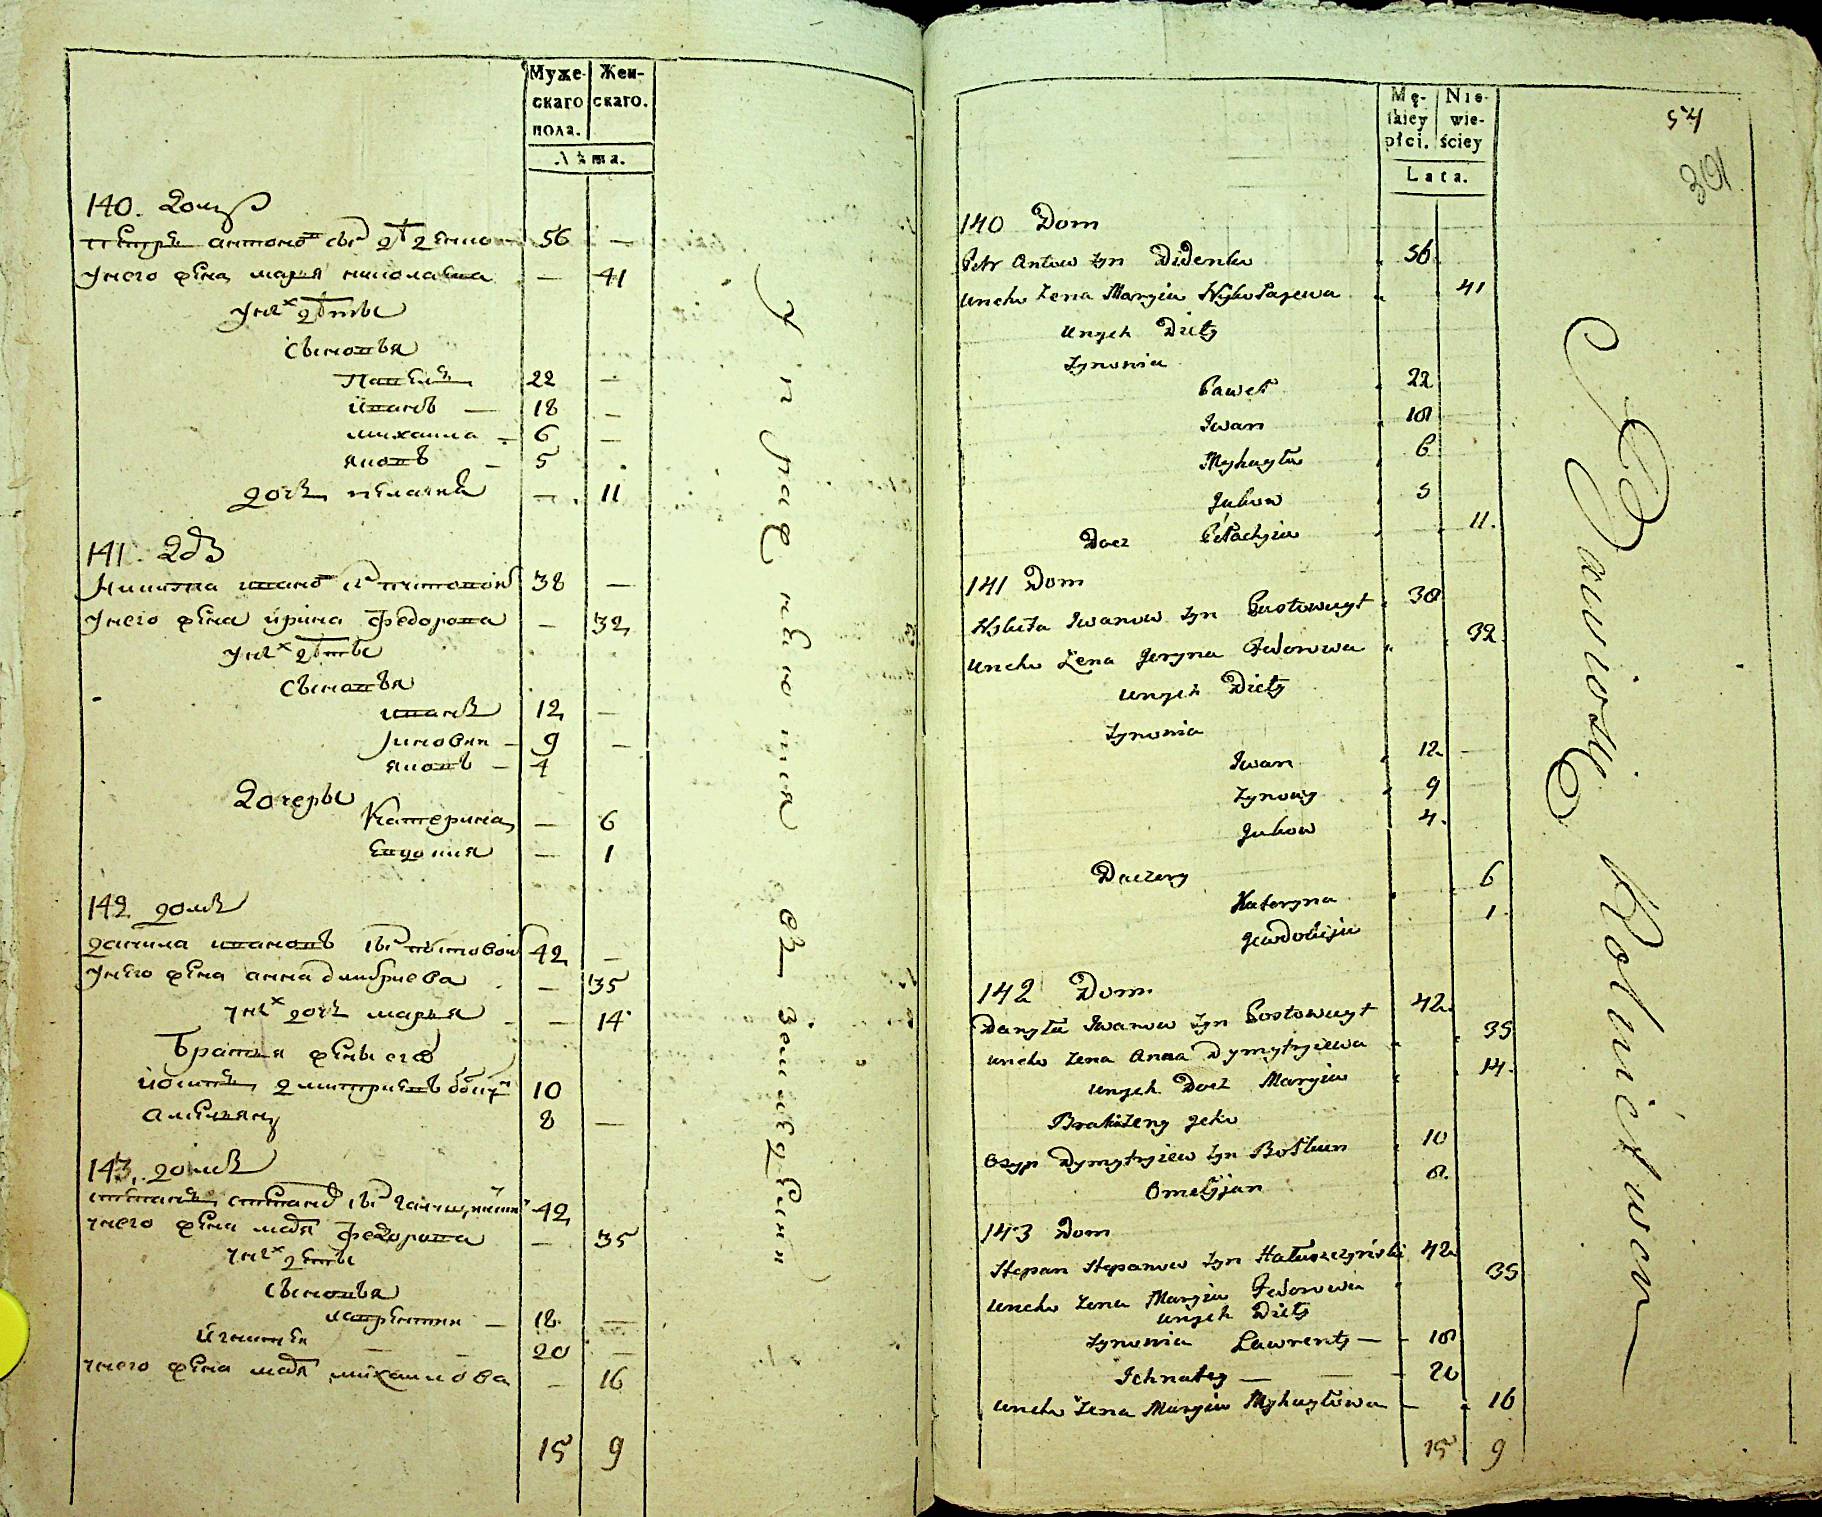 Муже-
скаго
пола.
Жен-
скаго.
Лѣта.
140. домъ
Петръ антоновъ сынъ дѣденко 56 —
у него жена марья николаева — 41
у них дѣти
сыновья
Павелъ 22 —
иванъ — 18 —
михаила — 6 —
яковъ — 5
дочь пелагия — 11
141. домъ
Никита ивановъ сынъ пустовойтъ 38 —
у него жена ирина федорова — 32
у них дѣти
сыновья
иванъ 12 —
зиновий — 9 —
яковъ — 4
дочери
Катерина — 6
евдокия — 1
142 домъ
данила ивановъ сынъ пустовойтъ 42 —
у него жена анна дмитриева — 35
у них дочь марья — 14
братья жены его
иосипъ дмитриевъ 10
амельянъ 8 —
143. домъ
степанъ степановъ сынъ галущинский 42
у него жена марья федорова — 35
у них дѣти
сыновья
лаврентий — 18 —
игнатей — — 20 —
у него жена марья михайлова — 16
15 9
упражняются въ земледелии
Mę-
skiey
płci.
Nie-
wie-
ściey
Lata.
54
391.
140 Dom
Petr Antow syn Didenko 56
uneho żena Maryia Nykołajewa 41
unych Diety
synowia
Paweł 22
Iwan 18
Mychayło 6
Jakow 5
Docz Pełachyia 11.
141 Dom
Nykita Iwanow syn Pustowuyt 38
uneho żena Jeryna Fedorowa 32
unych Diety
synowia
Iwan 12
Zynowy 9
Jakow 4.
Doczery
Kateryna 6
Jewdokija 1
142 Dom
Danyło Iwanow syn Pustowuyt 42
uneho żena Anna Dymytryiewa 35
unych Docz Maryia 14.
Bratia żeny jeho
Osyp Dymytryiew syn Bołkun 10
Omelijan 8.
143 Dom
Stepan Stepanow syn Hałuszczyński 42
uneho żena Maryia Fedorowa 35
unych Diety
synowia Lawrenty — 18
Ichnatey — 20
uneho żena Maryia Mychayłowa — 16
15 9
Bawiący Rolnictwem